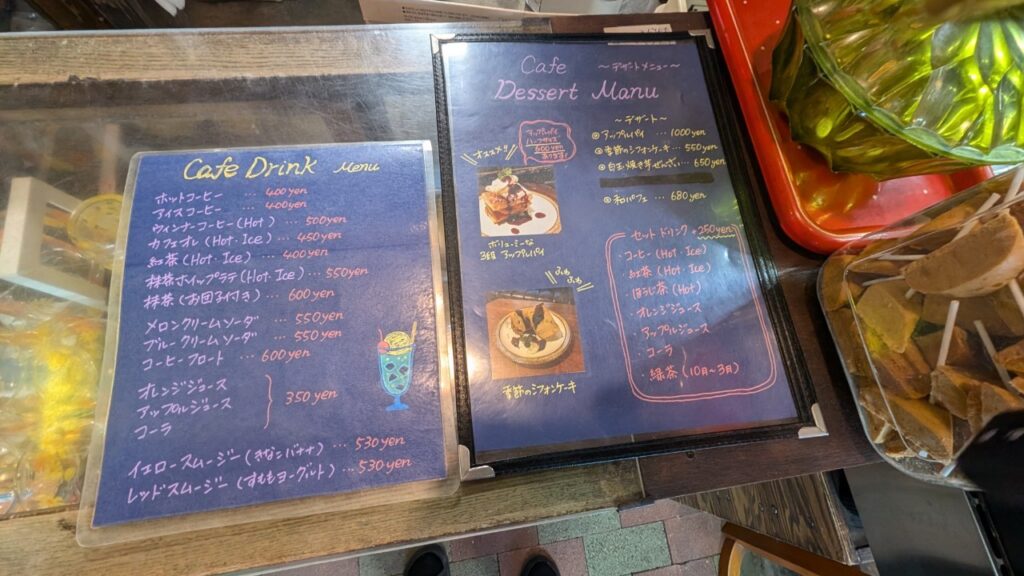 Cafe Drink Menu
ホットコーヒー … 400yen
アイスコーヒー … 400yen
ウィンナーコーヒー(Hot) … 500yen
カフェオレ(Hot・Ice) … 450yen
紅茶(Hot・Ice) … 400yen
抹茶ホイップラテ(Hot・Ice) … 550yen
抹茶(お団子付き) … 600yen
メロンクリームソーダ … 550yen
ブルークリームソーダ … 550yen
コーヒーフロート … 600yen
オレンジジュース
アップルジュース
コーラ
350yen
イエロースムージー(きなこバナナ) … 530yen
レッドスムージー(すももヨーグルト) … 530yen
Cafe 〜デザートメニュー〜
Dessert Manu
オススメ!!
アップルパイ
ハーフサイズ
600yen
あります
ボリューミーな
3段アップルパイ
ふわ
ふわ
季節のシフォンケーキ
〜デザート〜
アップルパイ … 1000yen
季節のシフォンケーキ … 550yen
白玉焼き芋ぜんざい … 650yen
和パフェ … 680yen
セットドリンク +250yen
・コーヒー(Hot・Ice)
・紅茶(Hot・Ice)
・ほうじ茶(Hot)
・オレンジジュース
・アップルジュース
・コーラ
・緑茶(10月〜3月)